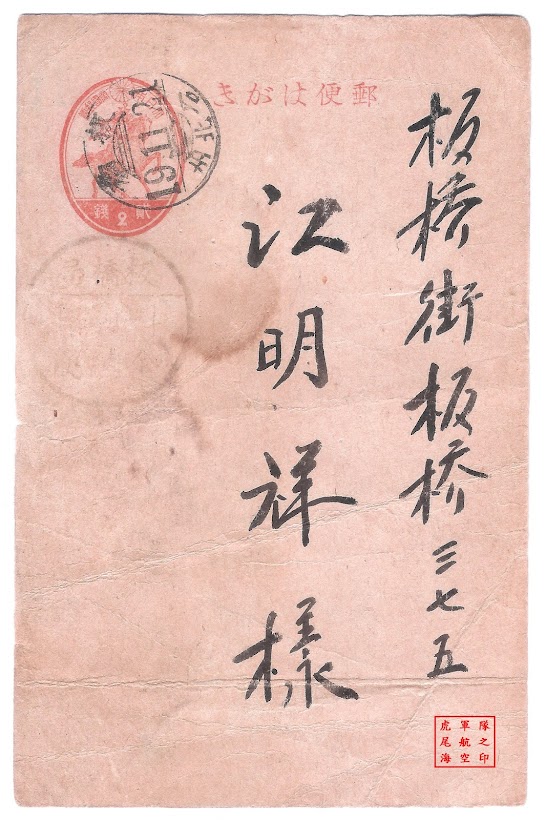 郵便はがき
貳2錢
板橋
19.11.21
板橋街板橋三七五
江明祥樣
虎尾海
軍航空
隊之印